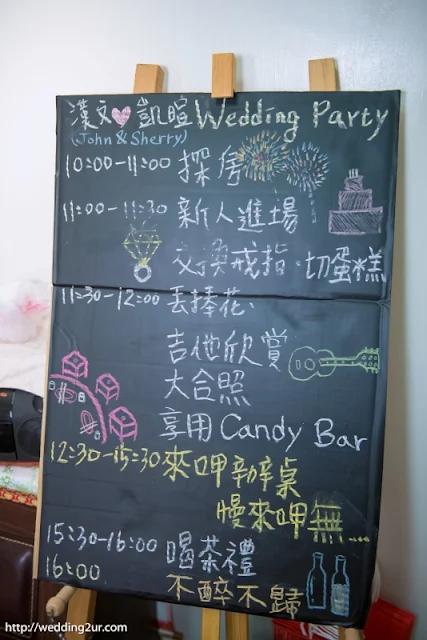 漢文♥凱暄 Wedding Party
(John & Sherry)
10:00-11:00 探房
11:00-11:30 新人進場
交換戒指·切蛋糕
11:30-12:00 丟捧花
吉他欣賞
大合照
享用 Candy Bar
12:30-15:30 來呷辦桌
慢來呷無....
15:30-16:00 喝茶禮
16:00 不醉不歸
http://wedding2ur.com